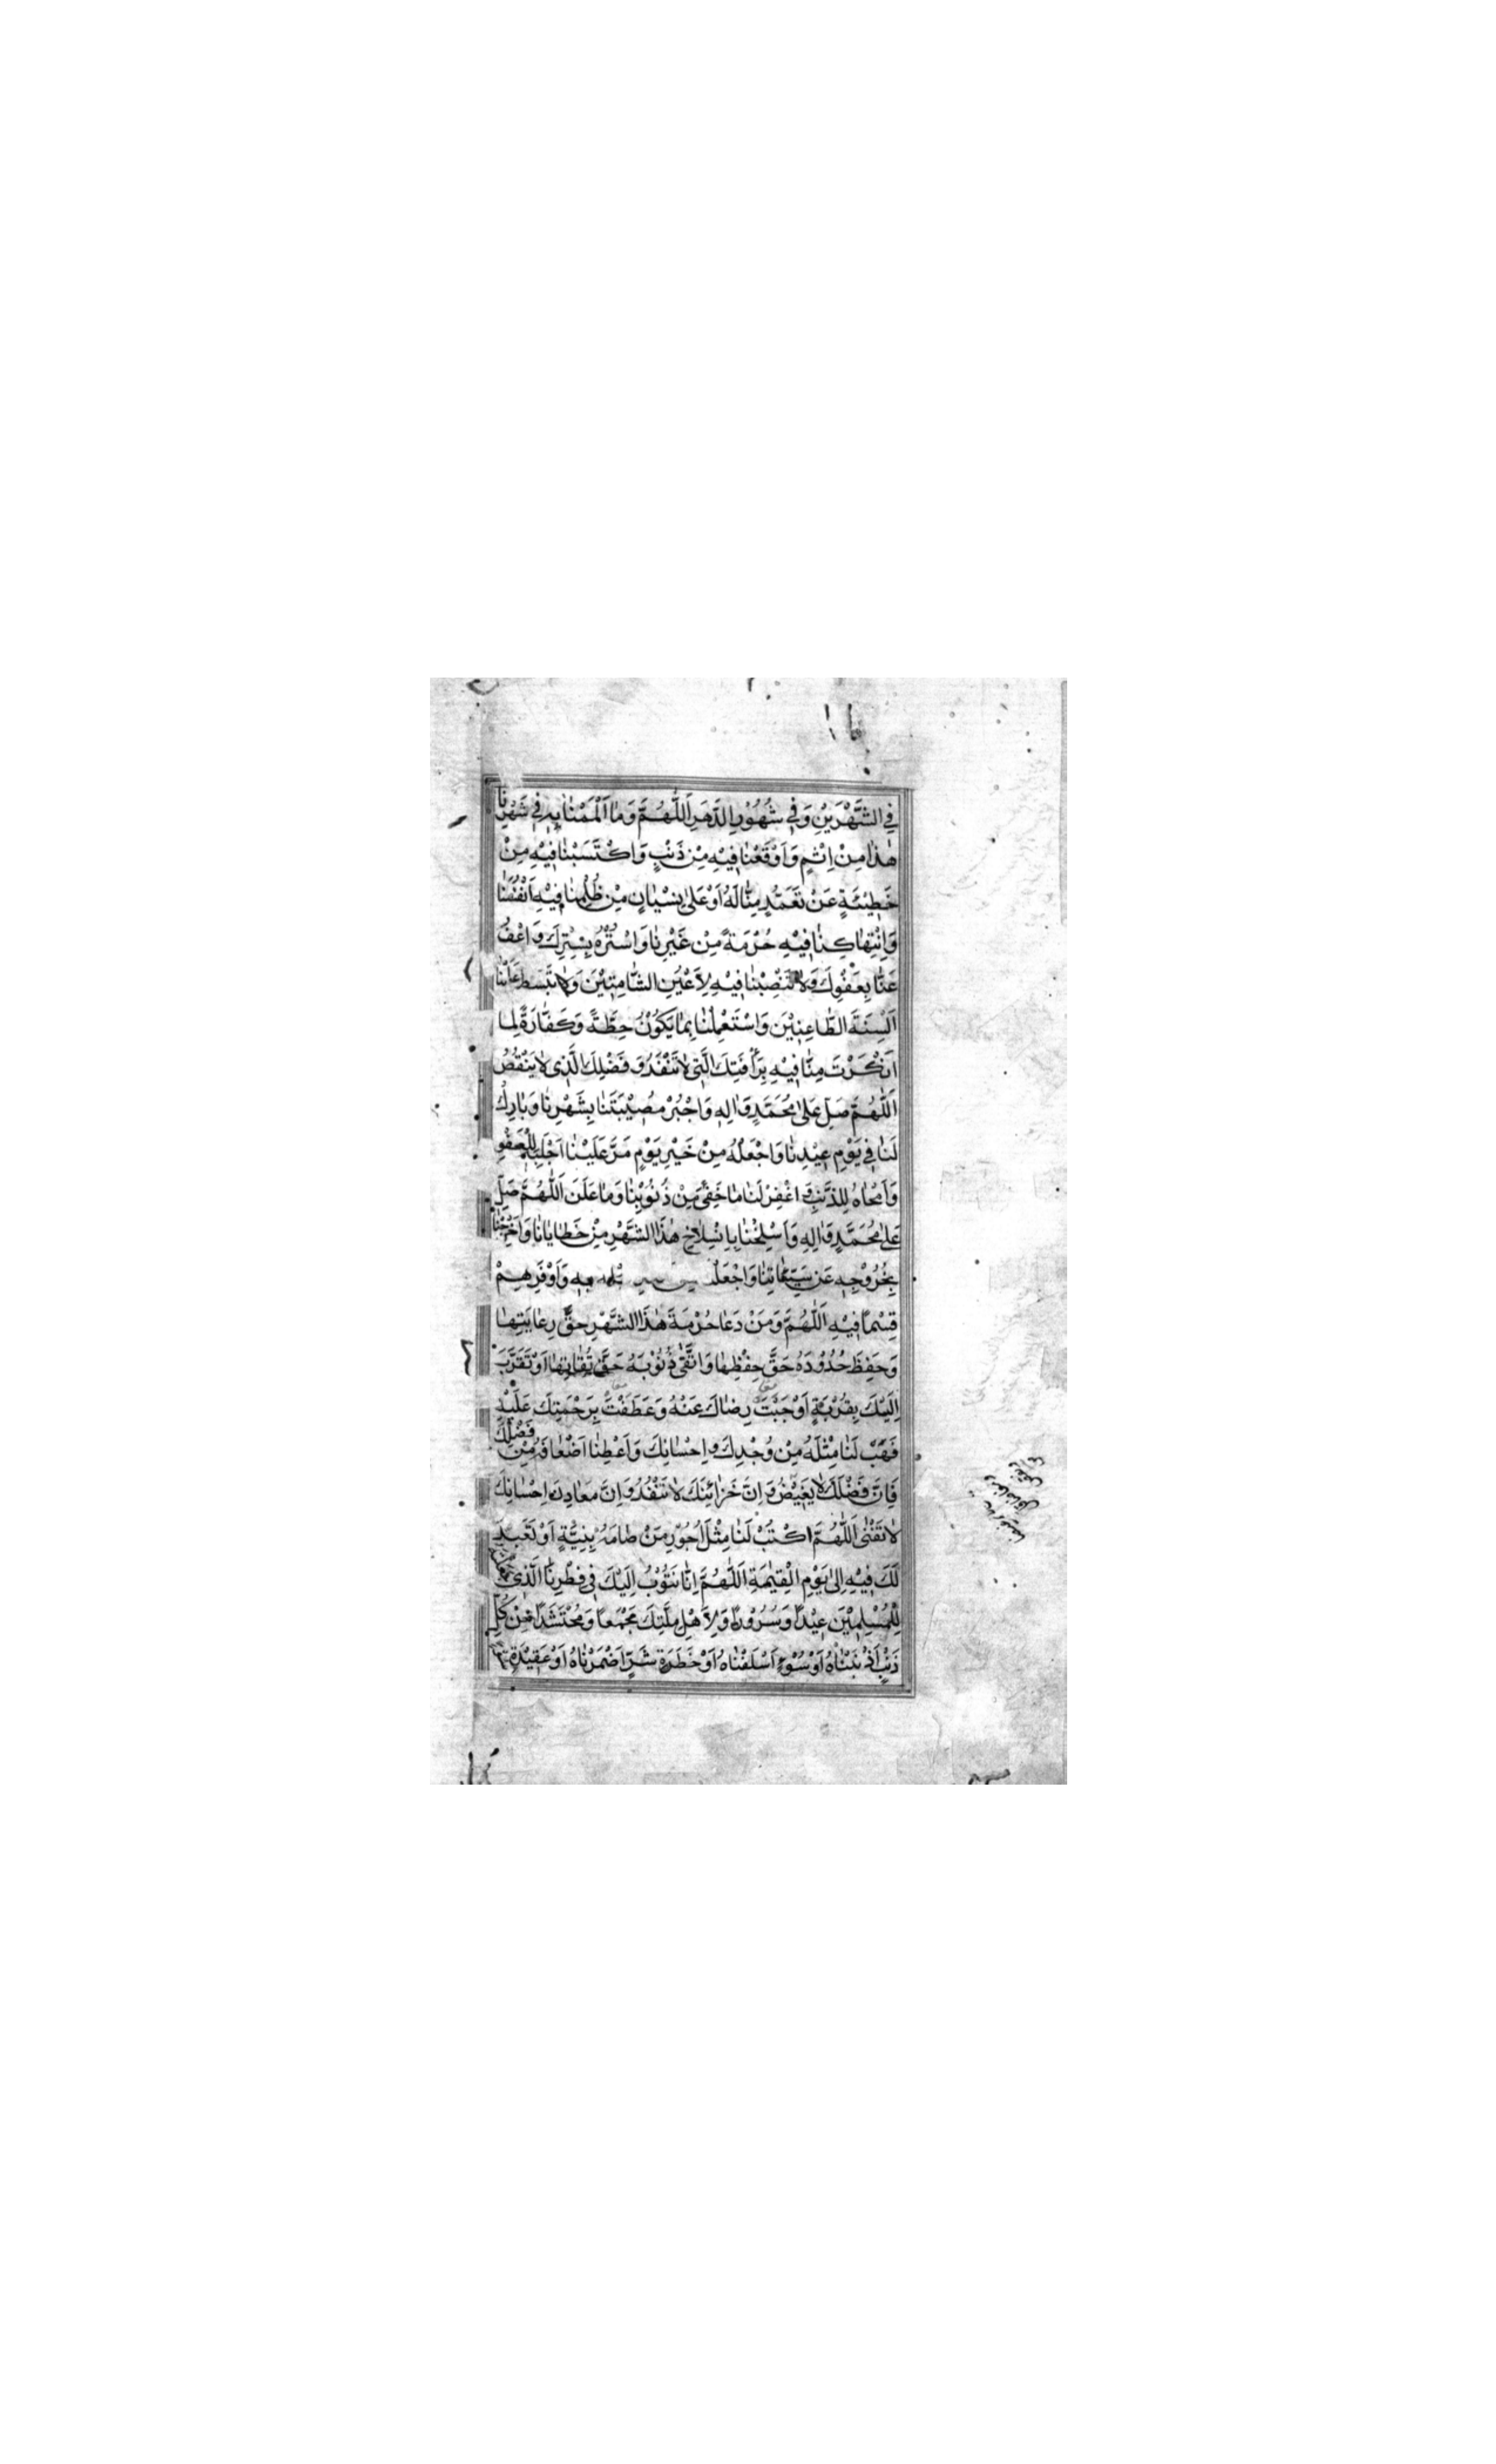 فِي الشَّهْرَيْنِ وَفِي شُهُوْرِ الدَّهْرِ اَللّٰهُمَّ وَمَا اَلْمَمْنَا بِهٖ فِي شَهْرِنَا
هٰذَا مِنْ اِثْمٍ وَاَوْقَعْنَا فِيْهِ مِنْ ذَنْبٍ وَاكْتَسَبْنَا فِيْهِ مِنْ
خَطِيْئَةٍ عَنْ تَعَمُّدٍ مِنَّا لَهُ اَوْ عَلٰى نِسْيَانٍ مِنْ ظُلْمِنَا فِيْهِ اَنْفُسَنَا
وَانْتِهَاكِنَا فِيْهِ حُرْمَةً مِنْ غَيْرِنَا وَاسْتُرْهُ بِسِتْرِكَ وَاعْفُ
عَنَّا بِعَفْوِكَ وَلَا تَنْصِبْنَا فِيْهِ لِاَعْيُنِ الشَّامِتِيْنَ وَلَا تَبْسُطْ عَلَيْنَا
اَلْسِنَةَ الطَّاعِنِيْنَ وَاسْتَعْمِلْنَا بِمَا يَكُوْنُ حِطَّةً وَكَفَّارَةً لِمَا
اَنْكَرْتَ مِنَّا فِيْهِ بِرَأْفَتِكَ الَّتِي لَا تَنْفَدُ وَفَضْلِكَ الَّذِي لَا يَنْقُصُ
اَللّٰهُمَّ صَلِّ عَلٰى مُحَمَّدٍ وَاٰلِهٖ وَاجْبُرْ مُصِيْبَتَنَا بِشَهْرِنَا وَبَارِكْ
لَنَا فِي يَوْمِ عِيْدِنَا وَاجْعَلْهُ مِنْ خَيْرِ يَوْمٍ مَرَّ عَلَيْنَا اَجْلَبِهٖ لِلْعَفْوِ
وَاَمْحَاهُ لِلذَّنْبِ وَاغْفِرْ لَنَا مَا خَفِيَ مِنْ ذُنُوْبِنَا وَمَا عَلَنَ اَللّٰهُمَّ صَلِّ
عَلٰى مُحَمَّدٍ وَاٰلِهٖ وَاَسْلِخْنَا بِانْسِلَاخِ هٰذَا الشَّهْرِ مِنْ خَطَايَانَا وَاَخْرِجْنَا
بِخُرُوْجِهٖ عَنْ سَيِّئَاتِنَا وَاجْعَلْنَا بِهٖ وَاَوْفَرِهِمْ
قِسْمًا فِيْهِ اَللّٰهُمَّ وَمَنْ دَعَا حُرْمَةَ هٰذَا الشَّهْرِ حَقَّ رِعَايَتِهَا
وَحَفِظَ حُدُوْدَهُ حَقَّ حِفْظِهَا وَاتَّقٰى ذُنُوْبَهُ حَقَّ تُقَاتِهَا اَوْ تَقَرَّبَ
اِلَيْكَ بِقُرْبَةٍ اَوْجَبَتْ رِضَاكَ عَنْهُ وَعَطَفَتْ بِرَحْمَتِكَ عَلَيْهِ
فَهَبْ لَنَا مِثْلَهُ مِنْ وُجْدِكَ وَاِحْسَانِكَ وَاَعْطِنَا اَضْعَافَهُ مِنْ فَضْلِكَ
فَاِنَّ فَضْلَكَ لَا يَغِيْضُ وَاِنَّ خَزَائِنَكَ لَا تَنْفَدُ وَاِنَّ مَعَادِنَ اِحْسَانِكَ
لَا تَفْنٰى اَللّٰهُمَّ اكْتُبْ لَنَا مِثْلَ اُجُوْرِ مَنْ صَامَهُ بِنِيَّةٍ اَوْ تَعَبَّدَ
لَكَ فِيْهِ اِلٰى يَوْمِ الْقِيٰمَةِ اَللّٰهُمَّ اِنَّا نَتُوْبُ اِلَيْكَ فِي فِطْرِنَا الَّذِي جَعَلْتَهُ
لِلْمُسْلِمِيْنَ عِيْدًا وَسُرُوْرًا وَلِاَهْلِ مِلَّتِكَ مَجْمَعًا وَمُحْتَشَدًا مِنْ كُلِّ
ذَنْبٍ اَذْنَبْنَاهُ اَوْ سُوْءٍ اَسْلَفْنَاهُ اَوْ خَطْرَةِ شَرٍّ اَضْمَرْنَاهُ اَوْ عَقِيْدَةٍ